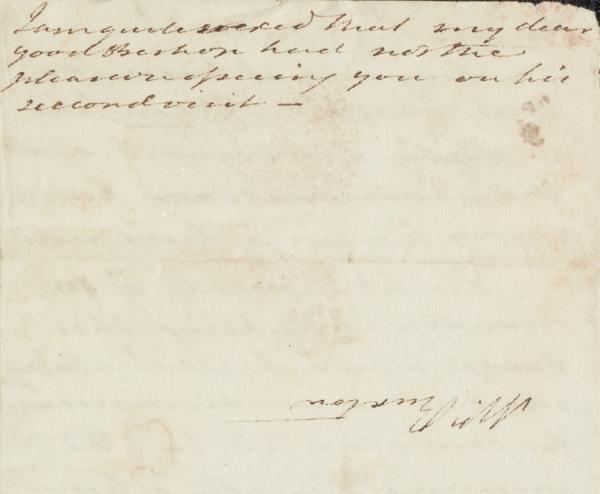 I am quite vexed that my dear
good Bishop had not the
pleasure of seeing you on his
second visit —
Mrs. Ruxton